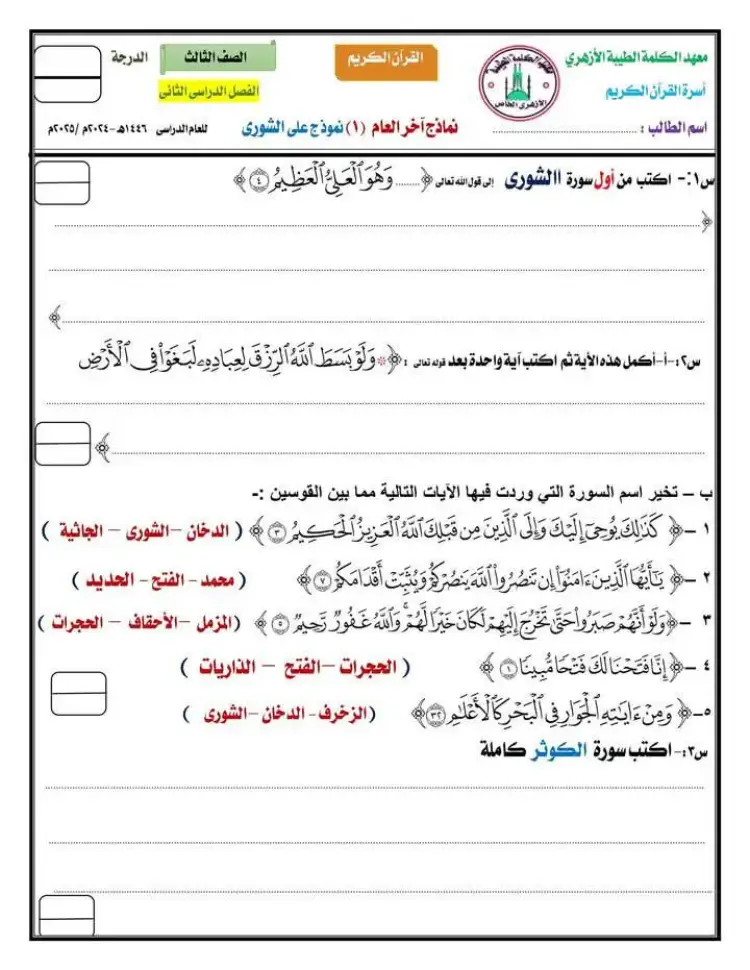 معهد الكلمة الطيبة الأزهري
القرآن الكريم
الصف الثالث
الدرجة
أسرة القرآن الكريم
الفصل الدراسى الثانى
اسم الطالب : ........................
نماذج آخر العام (١) نموذج على الشورى
للعام الدراسى ١٤٤٦هـ-٢٠٢٤م /٢٠٢٥م
س١:- اكتب من أول سورة االشورى إلى قول الله تعالى ﴿ ....... وَهُوَ ٱلْعَلِىُّ ٱلْعَظِيمُ ٤ ﴾
﴿
﴾
س٢:-أ-أكمل هذه الأية ثم اكتب آية واحدة بعد قوله تعالى : ﴿ * وَلَوْ بَسَطَ ٱللَّهُ ٱلرِّزْقَ لِعِبَادِهِۦ لَبَغَوْا۟ فِى ٱلْأَرْضِ
﴾
ب – تخير اسم السورة التي وردت فيها الآيات التالية مما بين القوسين :-
١ -﴿ كَذَٰلِكَ يُوحِىٓ إِلَيْكَ وَإِلَى ٱلَّذِينَ مِن قَبْلِكَ ٱللَّهُ ٱلْعَزِيزُ ٱلْحَكِيمُ ٣ ﴾ ( الدخان –الشورى – الجاثية )
٢ -﴿ يَٰٓأَيُّهَا ٱلَّذِينَ ءَامَنُوٓا۟ إِن تَنصُرُوا۟ ٱللَّهَ يَنصُرْكُمْ وَيُثَبِّتْ أَقْدَامَكُمْ ٧ ﴾ ( محمد - الفتح - الحديد )
٣ -﴿ وَلَوْ أَنَّهُمْ صَبَرُوا۟ حَتَّىٰ تَخْرُجَ إِلَيْهِمْ لَكَانَ خَيْرًا لَّهُمْ ۚ وَٱللَّهُ غَفُورٌ رَّحِيمٌ ٥ ﴾ (المزمل –الأحقاف – الحجرات )
٤ -﴿ إِنَّا فَتَحْنَا لَكَ فَتْحًا مُّبِينًا ١ ﴾ ( الحجرات –الفتح – الذاريات )
٥-﴿ وَمِنْ ءَايَٰتِهِ ٱلْجَوَارِ فِى ٱلْبَحْرِ كَٱلْأَعْلَٰمِ ٣٢ ﴾ (الزخرف- الدخان –الشورى )
س٣:- اكتب سورة الكوثر كاملة